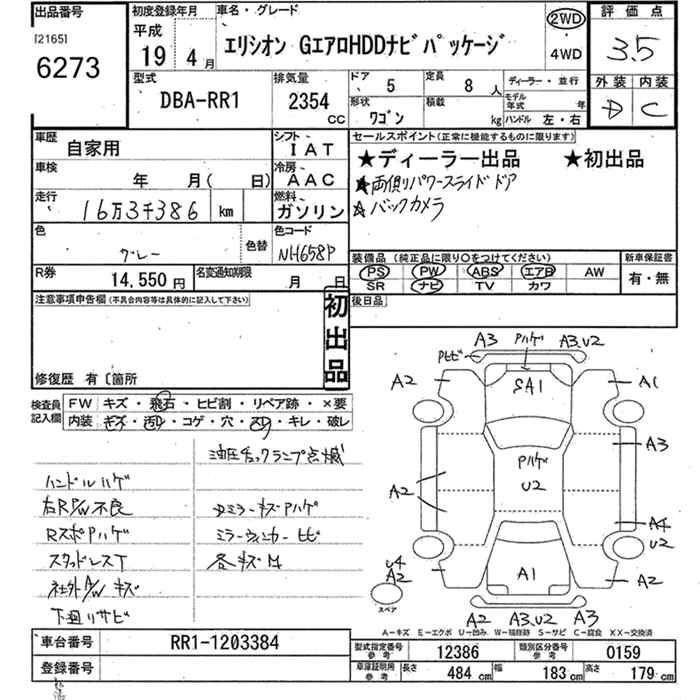 出品番号 初度登録年月 車名・グレード 2WD 評価点
[2165] 平成 エリシオン GエアロHDDナビパッケージ ・ 3.5
6273 19年 4月 4WD
型式 排気量 ドア 5 定員 8人 ディーラー・並行 外装 内装
DBA-RR1 2354 CC 形状 ワゴン 積載 kg モデル年式 年 D C
ハンドル 左・右
車歴 自家用 シフト IAT セールスポイント(正常に機能するものに限ります)
車検 年 月( 日) 冷房 AAC ★ディーラー出品 ★初出品
走行 16万3千386 km 燃料 ガソリン ★両側パワースライドドア
★バックカメラ
色 グレー 色替 色コード NH658P
装備品(純正品に限り○をつけてください) 新車保証書
R券 14,550円 名変通知期限 月 日 PS PW ABS エアB AW 有・無
SR ナビ TV カワ
注意事項申告欄(不具合内容等は具体的に記入して下さい) 初出品 後日品
修復歴 有〔箇所
検査員記入欄 FW キズ・飛石・ヒビ割・リペア跡・×要
内装 キズ・汚レ・コゲ・穴・スレ・キレ・破レ
油圧チェックランプ点滅
ハンドルハゲ
右RP/W不良 ドアミラーキズPハゲ
RスポPハゲ ミラーウィンカーヒビ
スタッドレスT 各キズM
社外A/Wキズ
下廻リサビ
A3 Pハゲ A3.U2
Pヒビ
A2 SA1 A1
A3
Pハゲ
U2
A2
A4
U2
U4
A2 A1 A2
スペア
A2 A3.U2 A3
A-キズ E-エクボ U-凹み W-補修跡 S-サビ C-腐食 XX-交換済
車台番号 RR1-1203384 型式指定番号 参考 12386 類別区分番号 参考 0159
登録番号 車庫証明用 参考 長さ 484 cm 幅 183 cm 高さ 179 cm